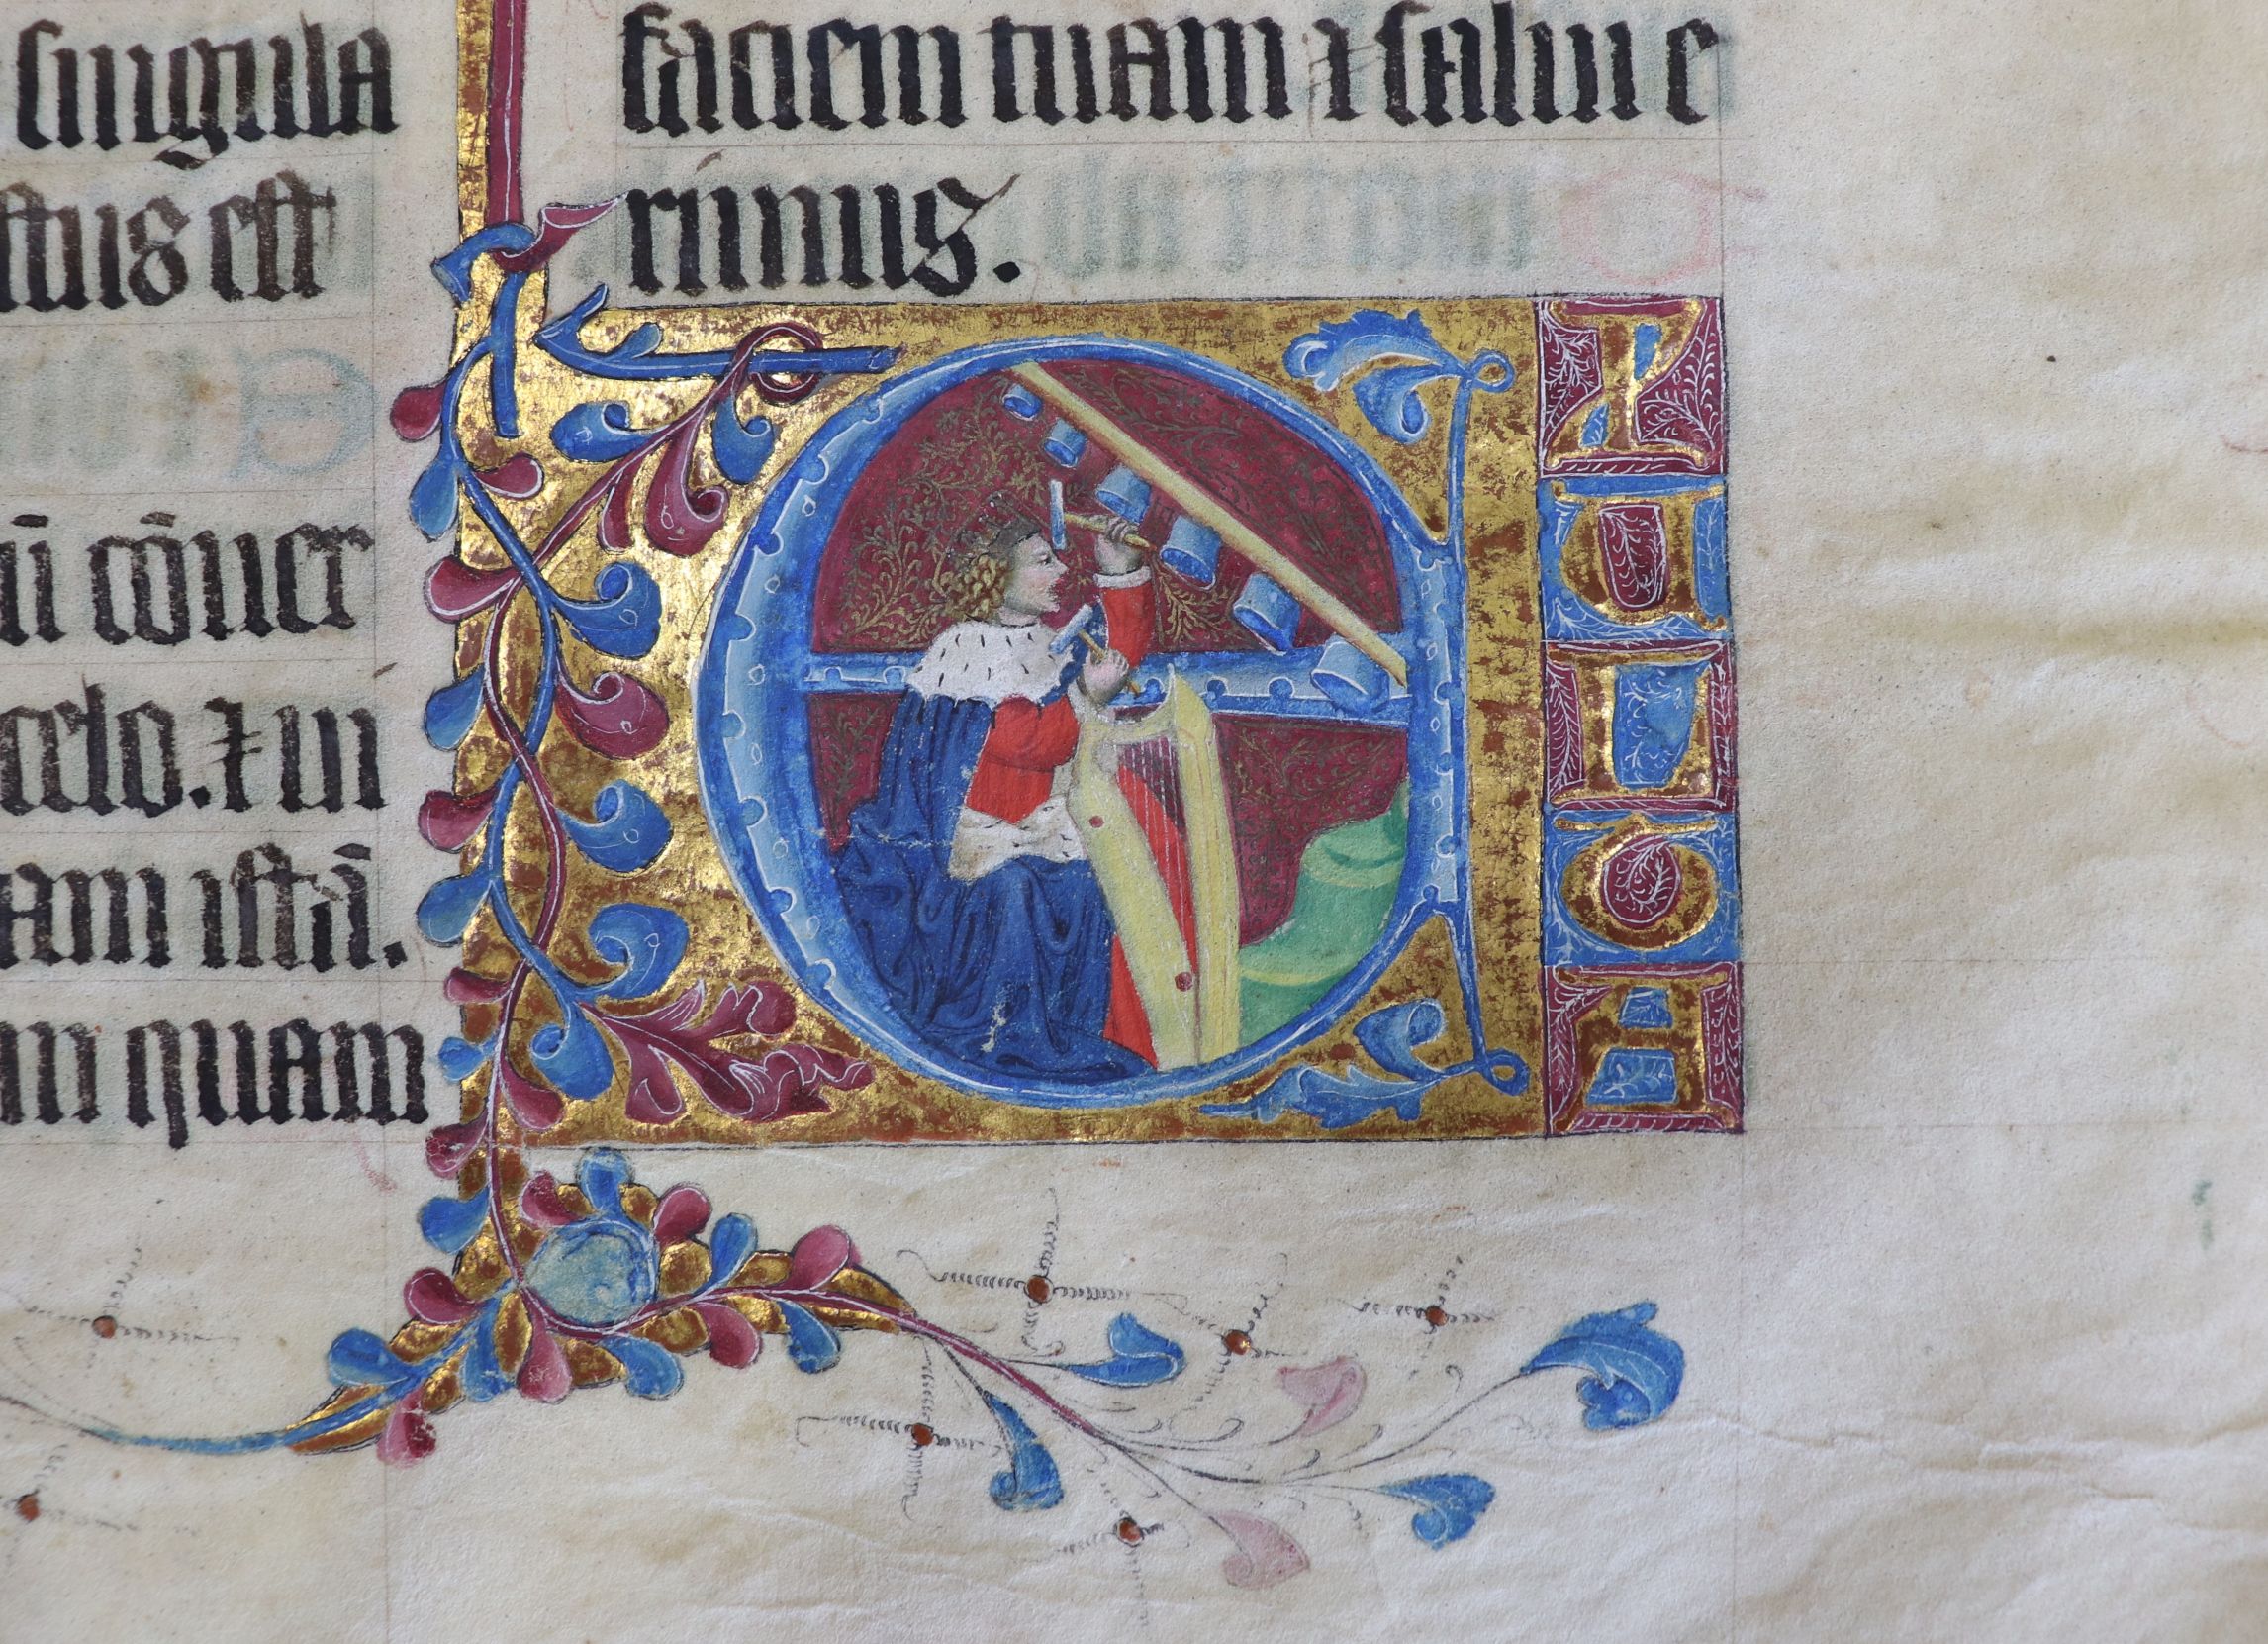 singula
stus est
ū cōuer
celo. ⁊ ui
am istā.
m quam
faciem tuam ⁊ salui e
rimus.
EXULTA